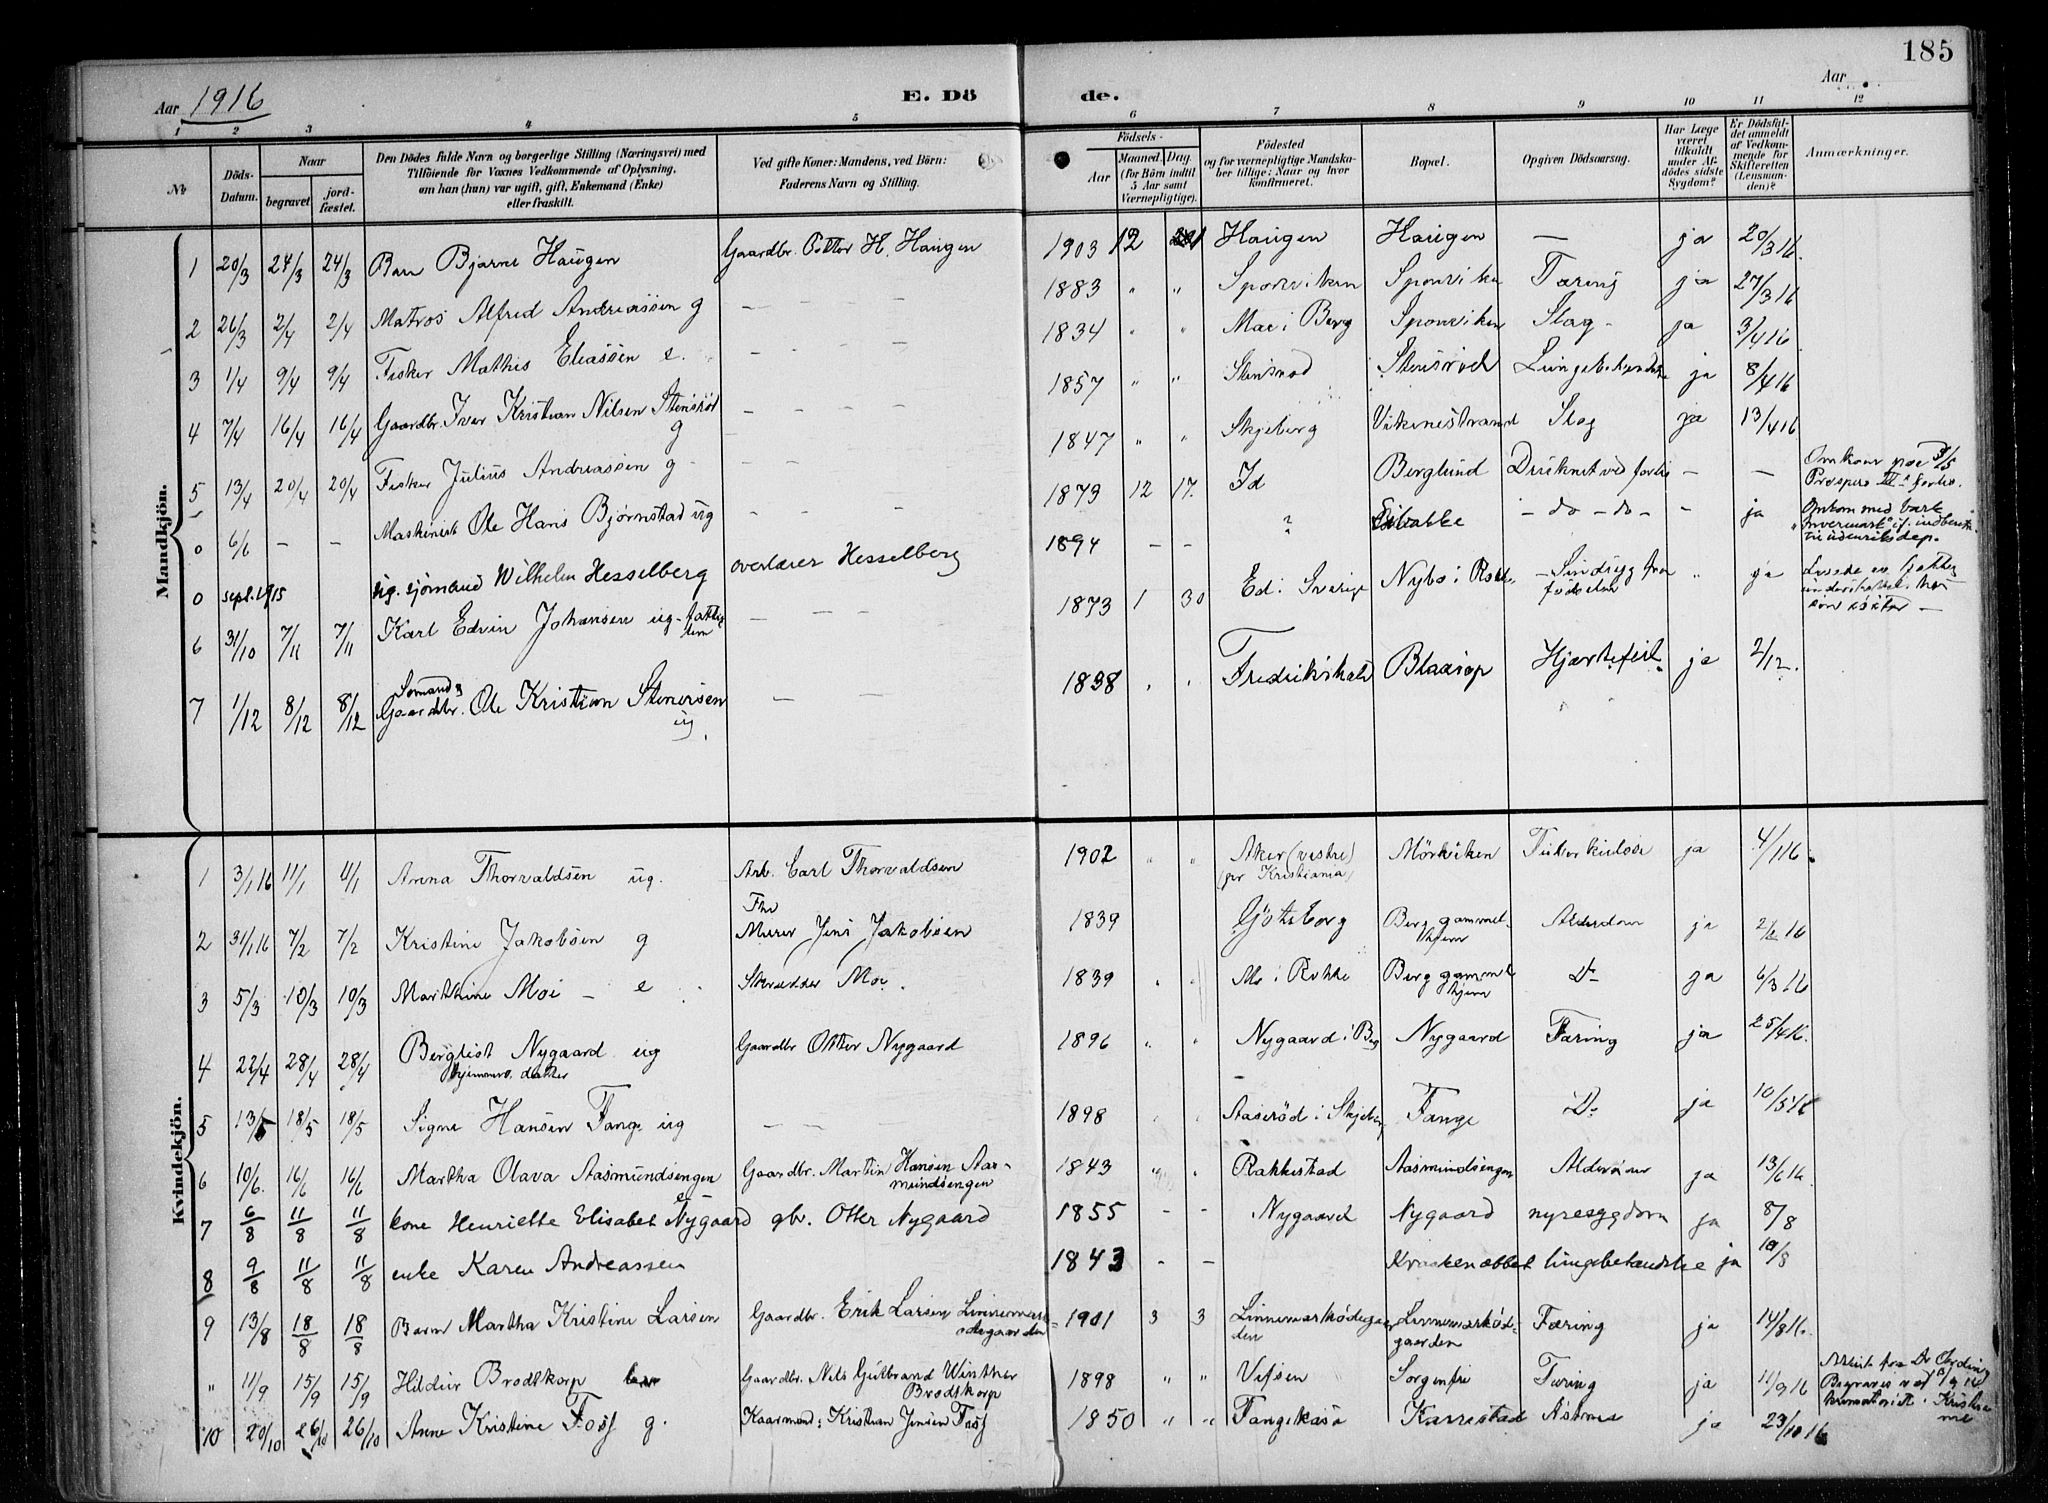 185
Aar 1916
E. Dö
de.
Aar
1 2 3 4 5 6 7 8 9 10 11 12
No
Döds-Datum.
Naar
begravet
jordfæstet.
Den Dödes fulde Navn og borgerlige Stilling (Næringsvei) med
Tilföiende for Voxnes Vedkommende af Oplysning,
om han (hun) var ugift, gift, Enkemand (Enke)
eller fraskilt.
Ved gifte Koner: Mandens, ved Börn:
Faderens Navn og Stilling.
Födsels-
Aar
Maaned. Dag.
(for Börn indtil
5 Aar samt
Værnepligtige).
Födested
og for værnepligtige Mandska-
ber tillige: Naar og hvor
konfirmeret.
Bopæl.
Opgiven Dödsaarsag.
Har Læge
været
tilkaldt
under Af-
dödes sidste
Sygdom?
Er Dödsfal-
det anmeldt
af Vedkom-
mende for
Skifteretten
(Lensman-
den)?
Anmærkninger.
Mandkjön.
1 20/3 24/3 24/3 Barn Bjarne Haugen Gaardbr. Petter H. Haugen 1903 12 Haugen Haugen — ja 20/3 16.
2 26/3 2/4 2/4 Matros Alfred Andreassen g — — 1883 " " Sponviken Sponviken Tæring ja 27/3 16
3 1/4 9/4 9/4 Fisker Mathis Eliassen e. — — 1834 " " Moe i Berg Sponviken Slag - ja 3/4 16
4 7/4 16/4 16/4 Gaardbr. Iver Kristian Nilsen Stensröd g — — 1857 " " Stensrød Stensröd ja 8/4 16
5 13/4 20/4 20/4 Fisker Julius Andreassen g - — — 1847 " " Skjeberg Slag ja 13/4 16
0 6/6 — — Maskinist Ole Hans Bjørnstad ug — — 1873 12 17. Id Berglund Druknet ved forlis — — Omkom paa 3/5
Prospero III's forlis.
0 sept. 1915 ug. sjømand Wilhelm Hesselberg overlærer Hesselberg 1894 — — ? - do - do - - ja Omkom med bark
"Invermark" if. indberetn.
til udenriksdep.
6 31/10 7/11 7/11 Karl Edvin Johansen ug - fattiglem — — 1873 1 30 Ed i Sverige Nybo i Rokke Sindsyg fra
fødselen " ja
7 1/12 8/12 8/12 Sømand &
Gaardbr. Ole Kristian Stenersen
ug — 1838 " " Fredrikshald Blaasop Hjertefeil ja 2/12.
Kvindekjön.
1 3/1 16 11/1 11/1 Anna Thorvaldsen ug. Arb. Carl Thorvaldsen 1902 " " Aker (vestre)
(pr Kristiania) Mörviken Tuberkulose ja 4/1 16.
2 31/1 16 7/2 7/2 Kristine Jakobsen g Fhv
Murer Jens Jakobsen 1839 Gjøteborg Berg gammel-
hjem Alderdom ja 2/2 16
3 5/3 10/3 10/3 Marthine Moe - e Skrædder Moe. 1839 " " Mo i Rokke Berg gammel
hjem Do ja 6/3 16
4 22/4 28/4 28/4 Bergliot Nygaard ug
hjemmev. datter Gaardbr Otter Nygaard 1896 " " Nygaard i Berg Nygaard Tæring ja 25/4 16.
5 13/5 18/5 18/5 Signe Hansen Fange ug — — 1898 " " Aaserød i Skjeberg Fange Do ja 10/5 16
6 10/6. 16/6 16/6 Martha Olava Aasmundsengen Gaardbr. Martin Hansen Aas-
mundsengen 1843 " " Rakkestad Aasmundsengen Alderdom ja 13/6 16.
7 6/8 11/8 11/8 kone Henriette Elisabet Nygaard gbr. Otter Nygaard 1855 — — Nygaard Nygaard nyresygdom ja 8/8
8 9/8 11/8 11/8 enke Karen Andreassen 1843 — — Kraakenæbbet lungebetændelse ja 10/8
9 13/8 18/8 18/8 Barn Martha Kristine Larsen Gaardbr. Erik Larsen Linnemark-
ødegaarden 1901 3 3 Linnemarkødegaar-
den Linnemarkøde-
gaarden Tæring ja 14/8 16.
" 11/9 15/9 15/9 Hildur Brodtkorp Gaardbr. Nils Gulbrand Winther
Brodtkorp 1898 " " Vefsen Sorgenfri Tæring ja 11/9 16
10 20/10 26/10 26/10 Anne Kristine Foss g. Kaarmand: Kristian Jensen Foss 1850 " " Karrestad Astma ja 23/10 16